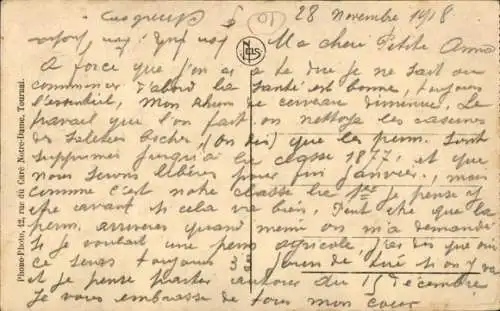 28 Novembre 1918
Ma chère Petite Anna
A force que l'on a à te dire je ne sait ou
commencer d'abord la santé est bonne, toujours
l'essentiel, mon rhume de cerveau diminue. Le
travail que l'on fait on nettoye les casernes
des Boches, (on dit) que les perm. sont
supprimés jusqu'à la classe 1877, et que
nous serons libérés pour fin Janvier, mais
comme c'est notre classe la 1re je pense y
être avant si cela va bien, Peut être que la
perm. arrivera quand même on m'a demandé
si je voulait une perm agricole, j'ai dis que oui
ce serat toujours 33 jours de tiré si on y va
et je pense partir autour du 15 décembre
Je vous embrasse de tous mon coeur
NELS
Phono-Photo, 12, rue du Curé Notre-Dame, Tournai.